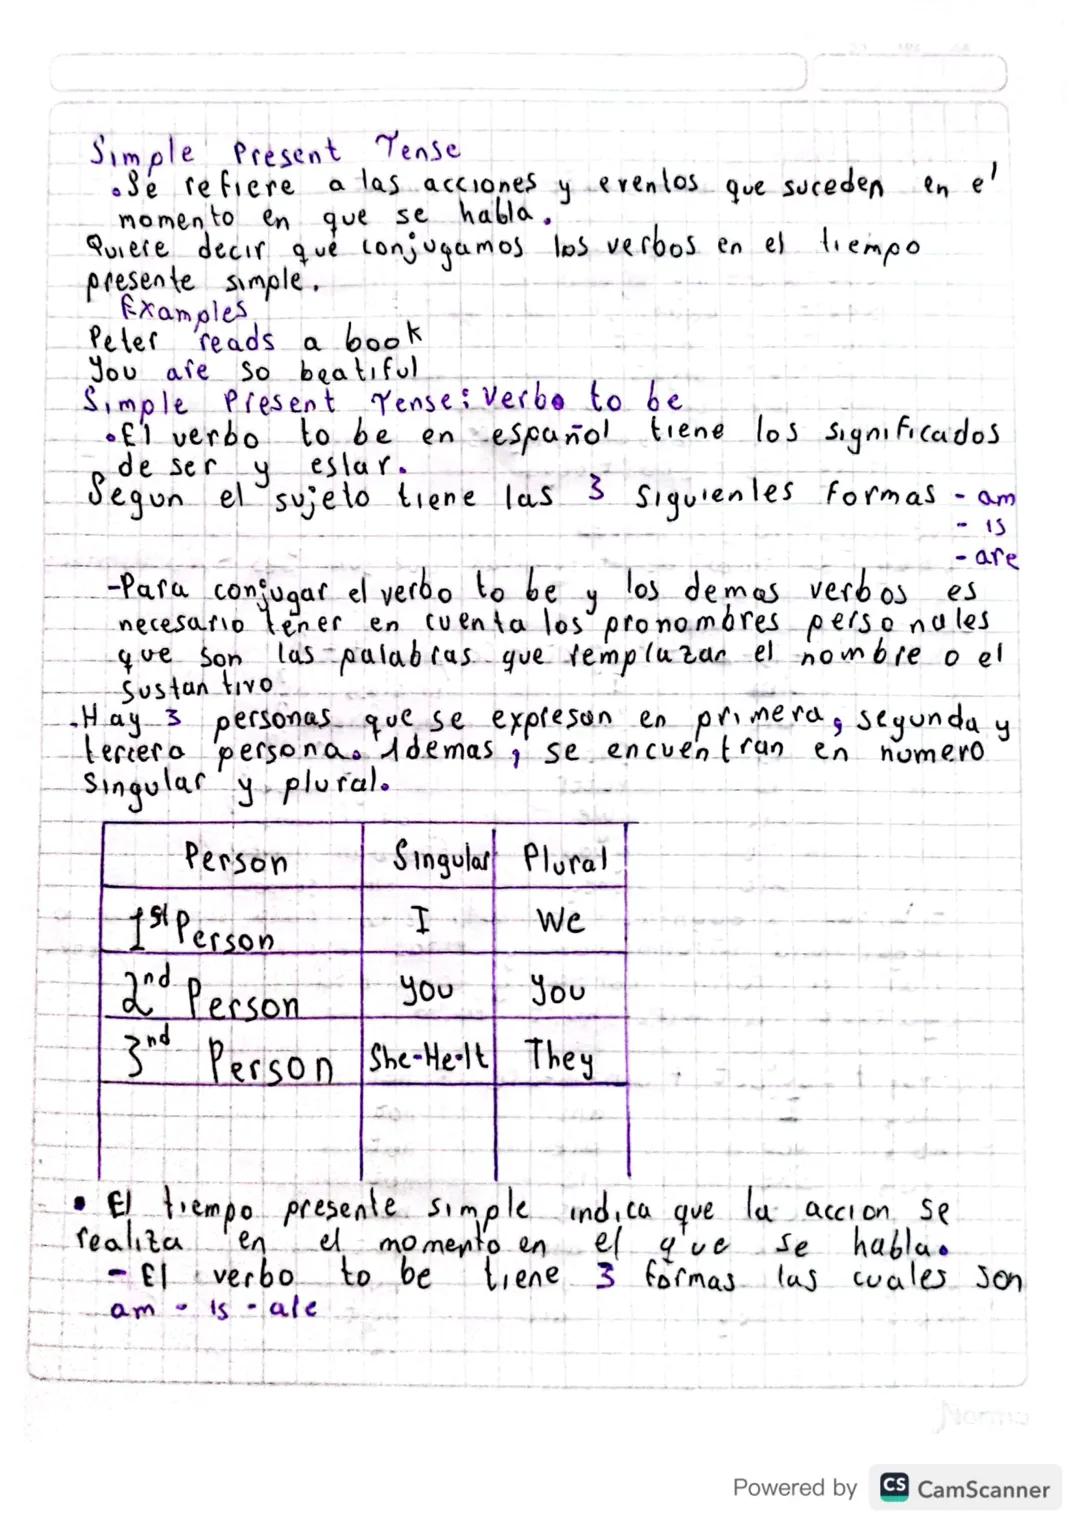 Simple Present Tense
•Se refiere a las acciones y eventos que suceden en el
momento en que se habla.
Quiere decir que conjugamos los verbos en el tiempo
presente simple.
Examples
Peter reads a book
You are so beatiful
Simple Present Tense: Verbo to be
•El verbo to be en español tiene los significados
de ser y estar.
Segun el sujeto tiene las 3 siguientes formas - am
- is
- are
-Para conjugar el verbo to be y los demas verbos es
necesario tener en cuenta los pronombres personales
que son las palabras que remplazan el nombre o el
sustantivo
.Hay 3 personas que se expresan en primera, segunda y
tercera persona. Ademas, se encuentran en numero
singular y plural.
Person Singular Plural
1st Person I We
2nd Person you you
3nd Person She-He-It They
• El tiempo presente simple indica que la accion se
realiza en el momento en el que se habla.
- El verbo to be tiene 3 formas las cuales son
am - is - are
Norma
Powered by CS CamScanner